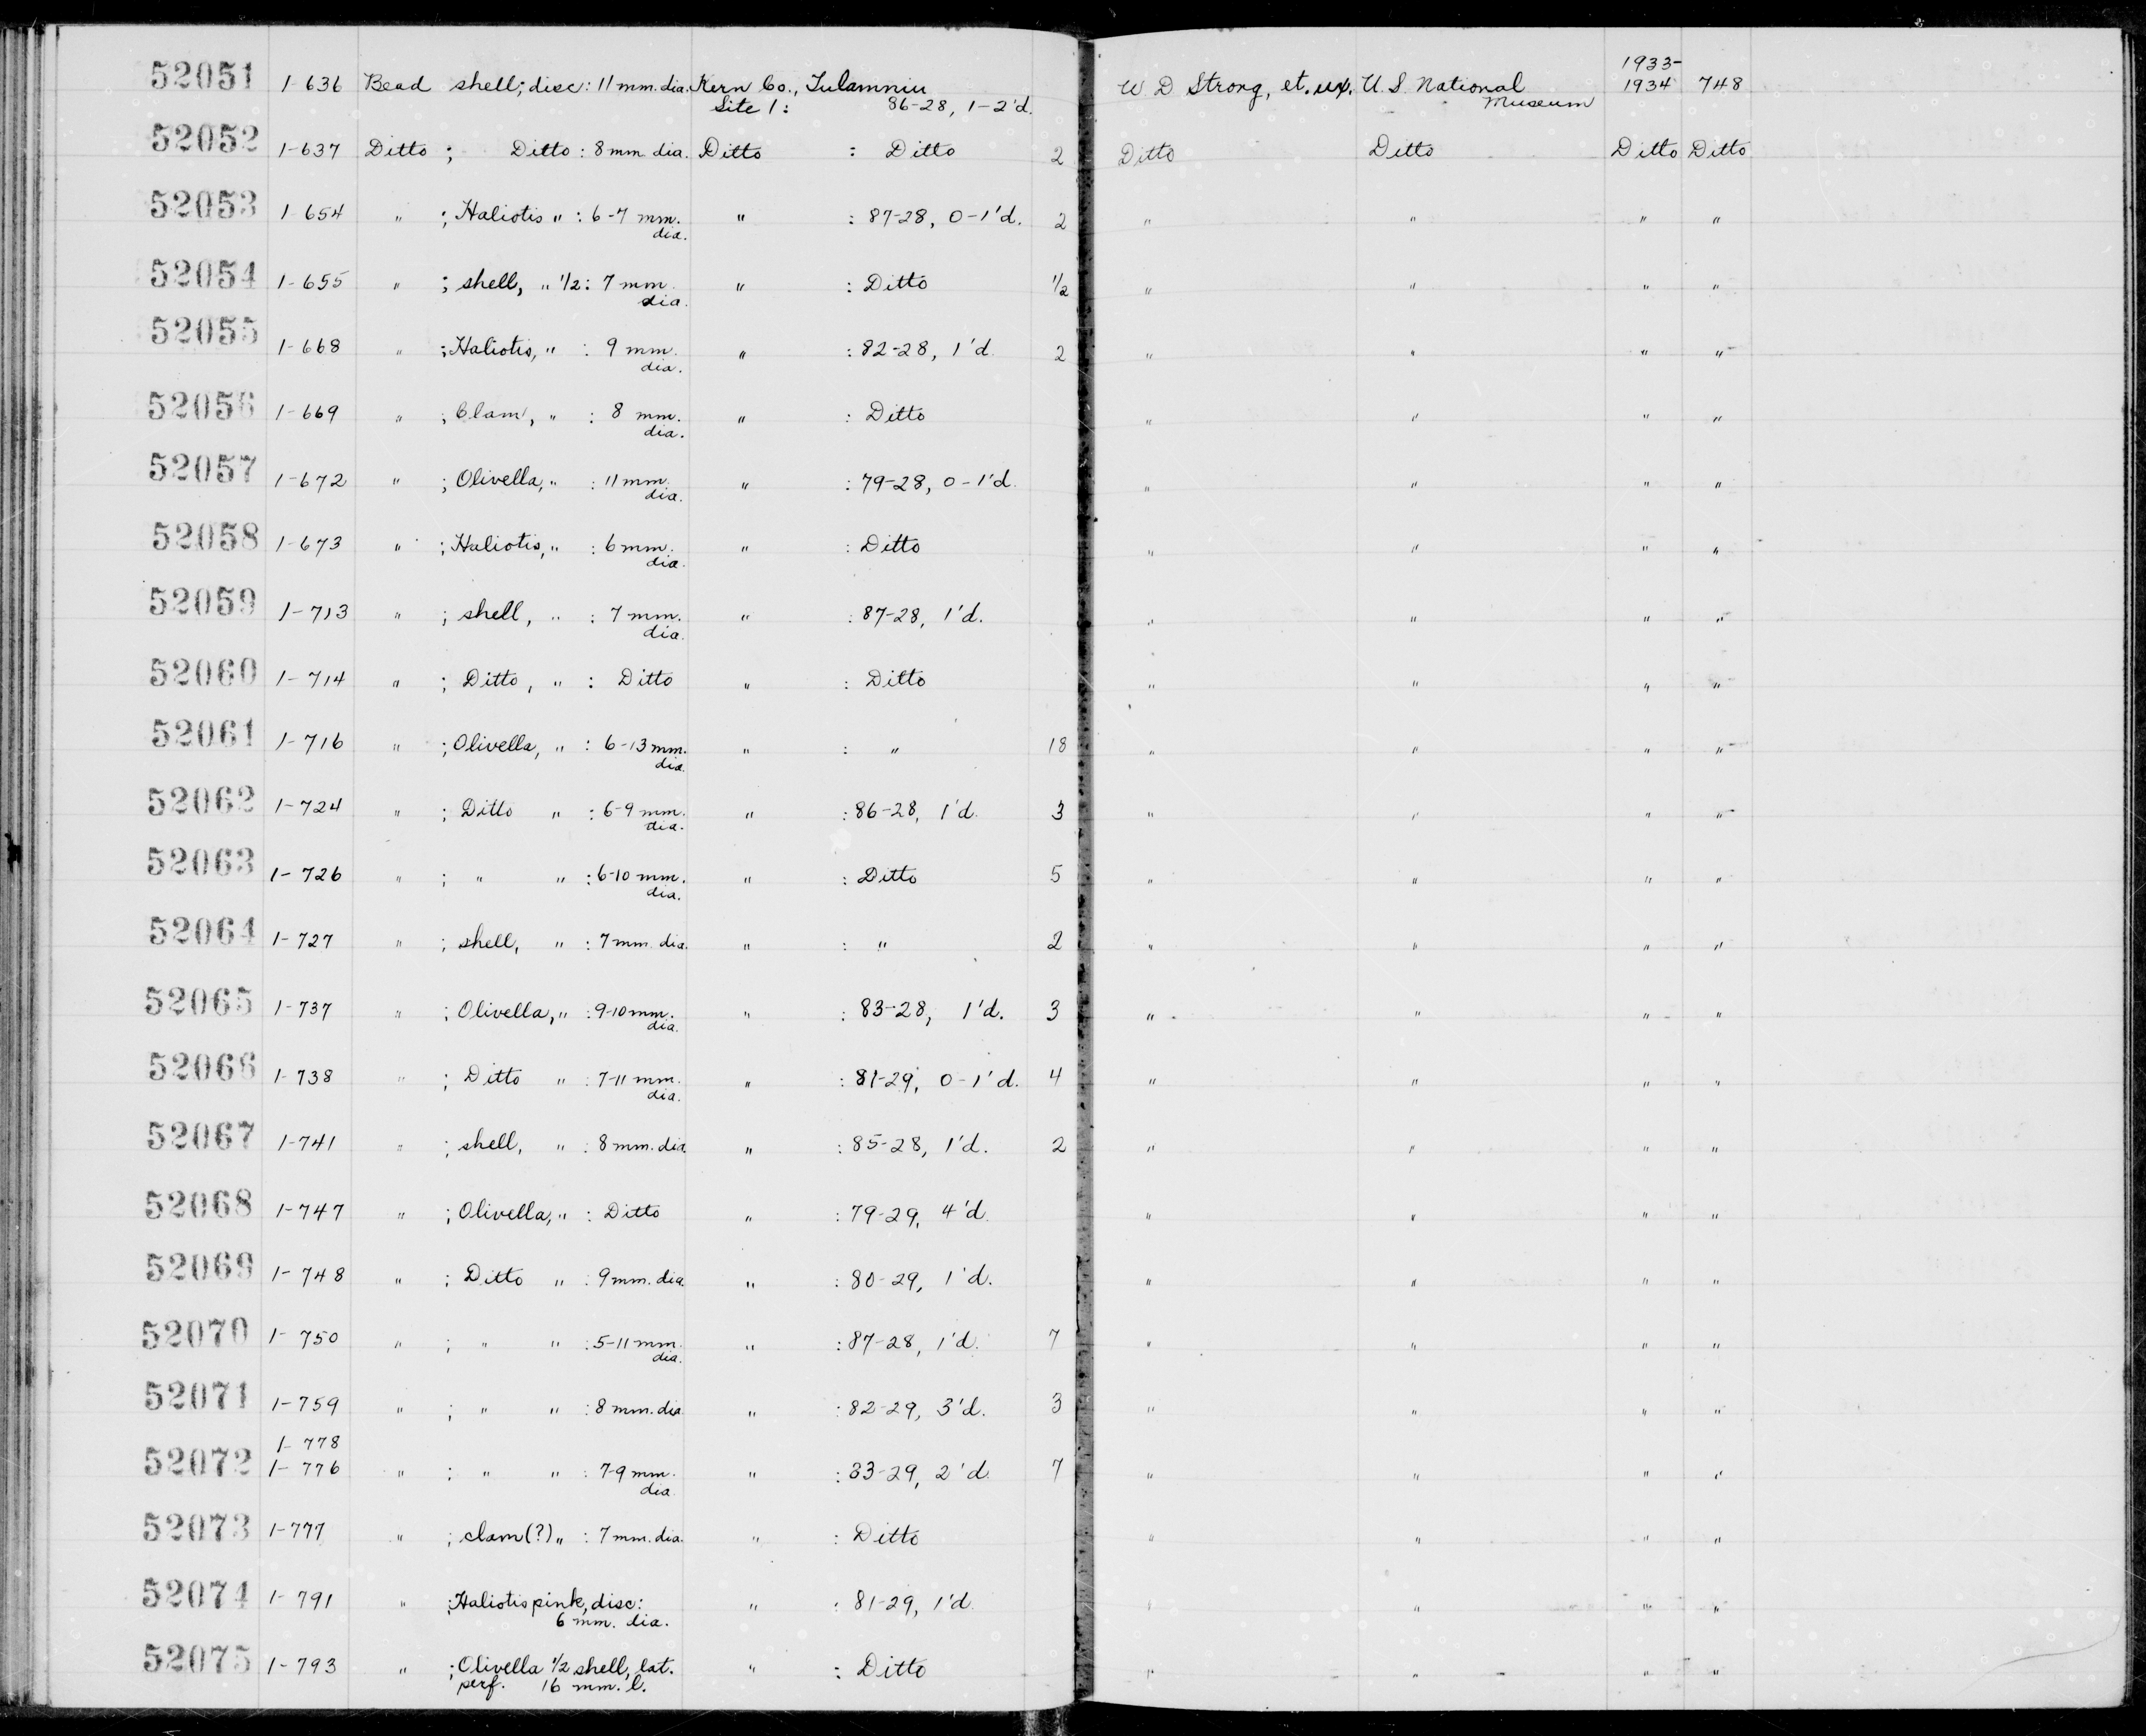 52051 1-636 Bead shell; disc: 11 mm. dia. Kern Co., Tulamniu W D Strong, et. ux. U.S. National 1933-
Site 1: 86-28, 1-2'd. Museum 1934 748
52052 1-637 Ditto ; Ditto : 8 mm dia. Ditto : Ditto 2 Ditto Ditto Ditto Ditto
52053 1-654 " ; Haliotis " : 6-7 mm. " : 87-28, 0-1'd. 2 " " " "
dia.
52054 1-655 " ; shell, " 1/2 : 7 mm. " : Ditto 1/2 " " " "
dia.
52055 1-668 " ; Haliotis, " : 9 mm. " : 82-28, 1'd. 2 " " " "
dia.
52056 1-669 " ; Clam, " : 8 mm. " : Ditto " " " "
dia.
52057 1-672 " ; Olivella, " : 11 mm. " : 79-28, 0-1'd. " " " "
dia.
52058 1-673 " ; Haliotis, " : 6 mm. " : Ditto " " " "
dia.
52059 1-713 " ; shell, " : 7 mm. " : 87-28, 1'd. " " " "
dia.
52060 1-714 " ; Ditto, " : Ditto " : Ditto " " " "
52061 1-716 " ; Olivella, " : 6-13 mm. " : " 18 " " " "
dia.
52062 1-724 " ; Ditto " : 6-9 mm. " : 86-28, 1'd. 3 " " " "
dia.
52063 1-726 " ; " " : 6-10 mm. " : Ditto 5 " " " "
dia.
52064 1-727 " ; shell, " : 7 mm. dia. " : " 2 " " " "
52065 1-737 " ; Olivella, " : 9-10 mm. " : 83-28, 1'd. 3 " " " "
dia.
52066 1-738 " ; Ditto " : 7-11 mm. " : 81-29, 0-1'd. 4 " " " "
dia.
52067 1-741 " ; shell, " : 8 mm. dia. " : 85-28, 1'd. 2 " " " "
52068 1-747 " ; Olivella, " : Ditto " : 79-29, 4'd. " " " "
52069 1-748 " ; Ditto " : 9 mm. dia. " : 80-29, 1'd. " " " "
52070 1-750 " ; " " : 5-11 mm. " : 87-28, 1'd. 7 " " " "
dia.
52071 1-759 " ; " " : 8 mm. dia. " : 82-29, 3'd. 3 " " " "
1-778
52072 1-776 " ; " " : 7-9 mm. " : 83-29, 2'd. 7 " " " "
dia.
52073 1-777 " ; clam(?) " : 7 mm. dia. " : Ditto " " " "
52074 1-791 " ; Haliotis pink, disc: " : 81-29, 1'd. " " " "
6 mm. dia.
52075 1-793 " ; Olivella 1/2 shell, lat. " : Ditto " " " "
perf. 16 mm. l.